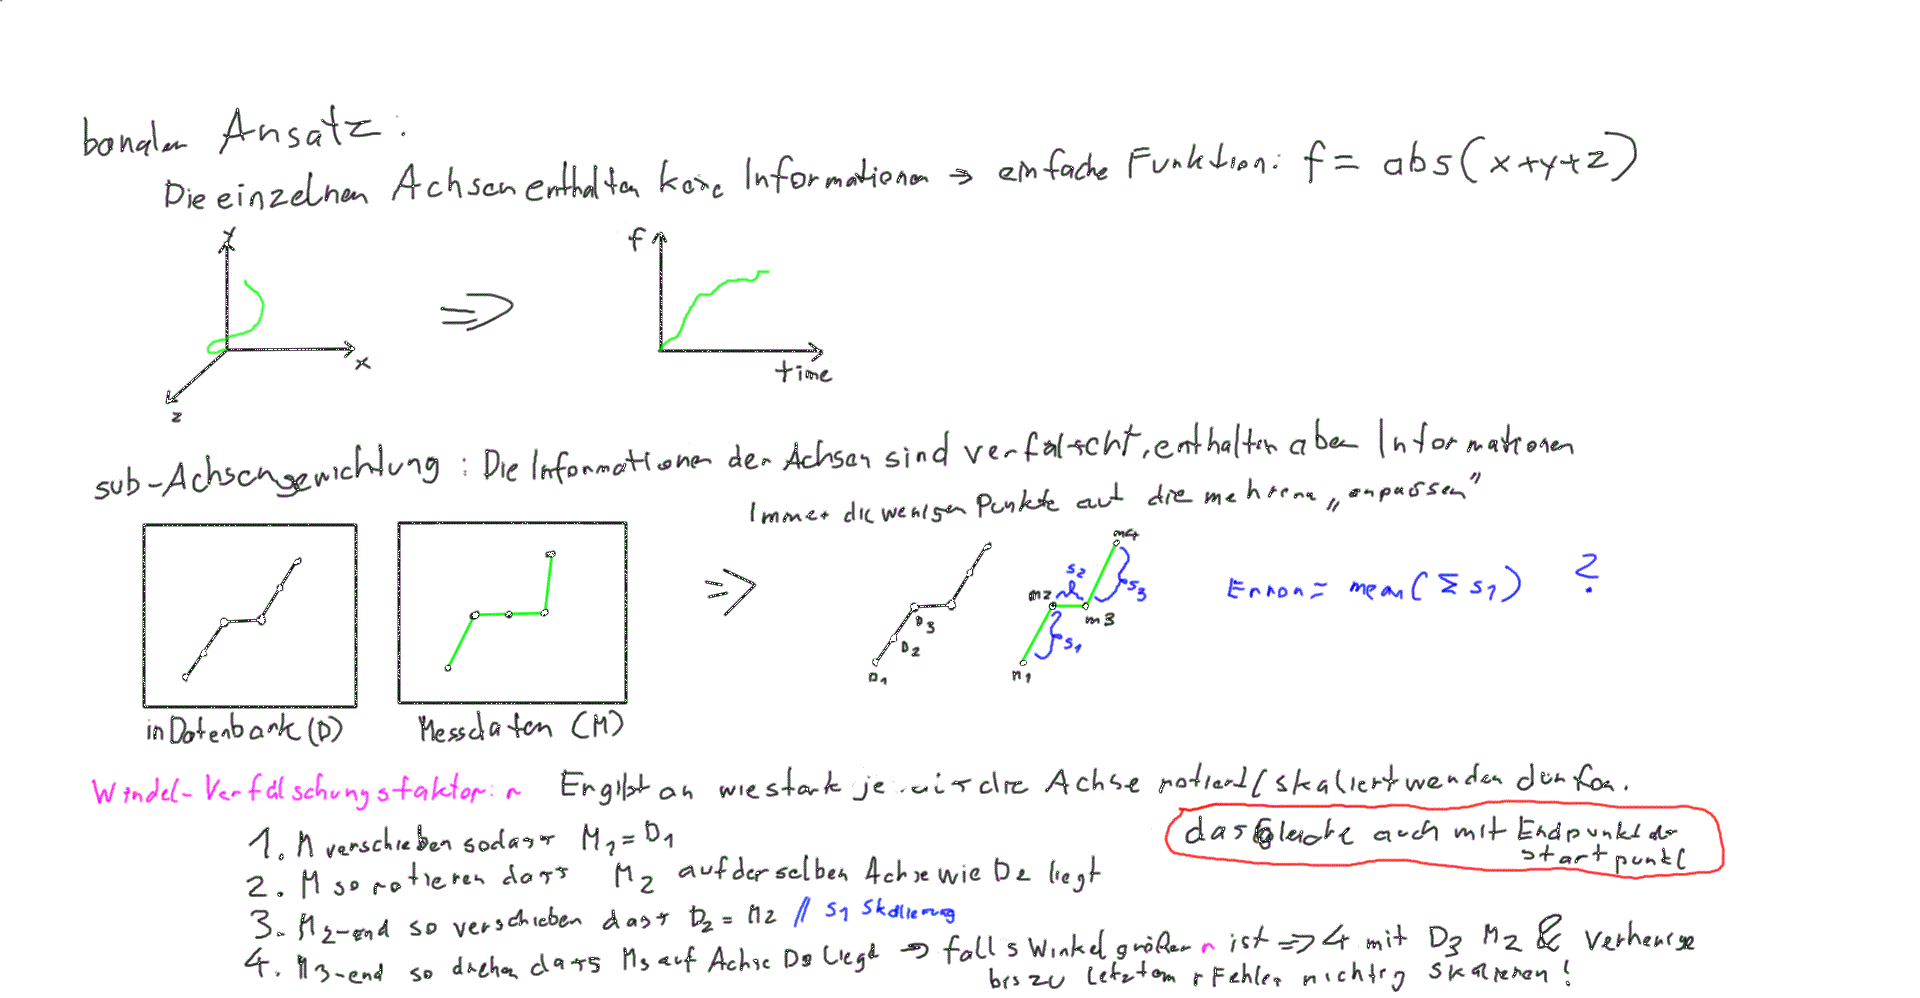 banaler Ansatz:
Die einzelnen Achsen enthalten keine Informationen → einfache Funktion: f = abs(x+y+z)
y
x
z
f
time
sub-Achsengewichtung: Die Informationen der Achsen sind verfälscht, enthalten aber Informationen
Immer die wenigen Punkte auf die mehrere „anpassen"
in Datenbank (D)
Messdaten (M)
D1
D2
D3
m1
m2
m3
m4
s1
s2
s3
Error = mean(Σ s1) ?
Winkel-Verfälschungsfaktor: r Ergibt an wie stark die Achse rotiert/skaliert werden dürfen.
1. M verschieben sodass M1 = D1
das Gleiche auch mit Endpunkt als
startpunkt
2. M so rotieren dass M2 auf derselben Achse wie D2 liegt
3. M2-end so verschieben dass D2 = M2 // S1 Skalierung
4. M3-end so drehen dass M3 auf Achse D3 liegt → falls Winkel größer r ist ⇒ 4 mit D3 M2 &
bis zu letztem r Fehler richtig skalieren!